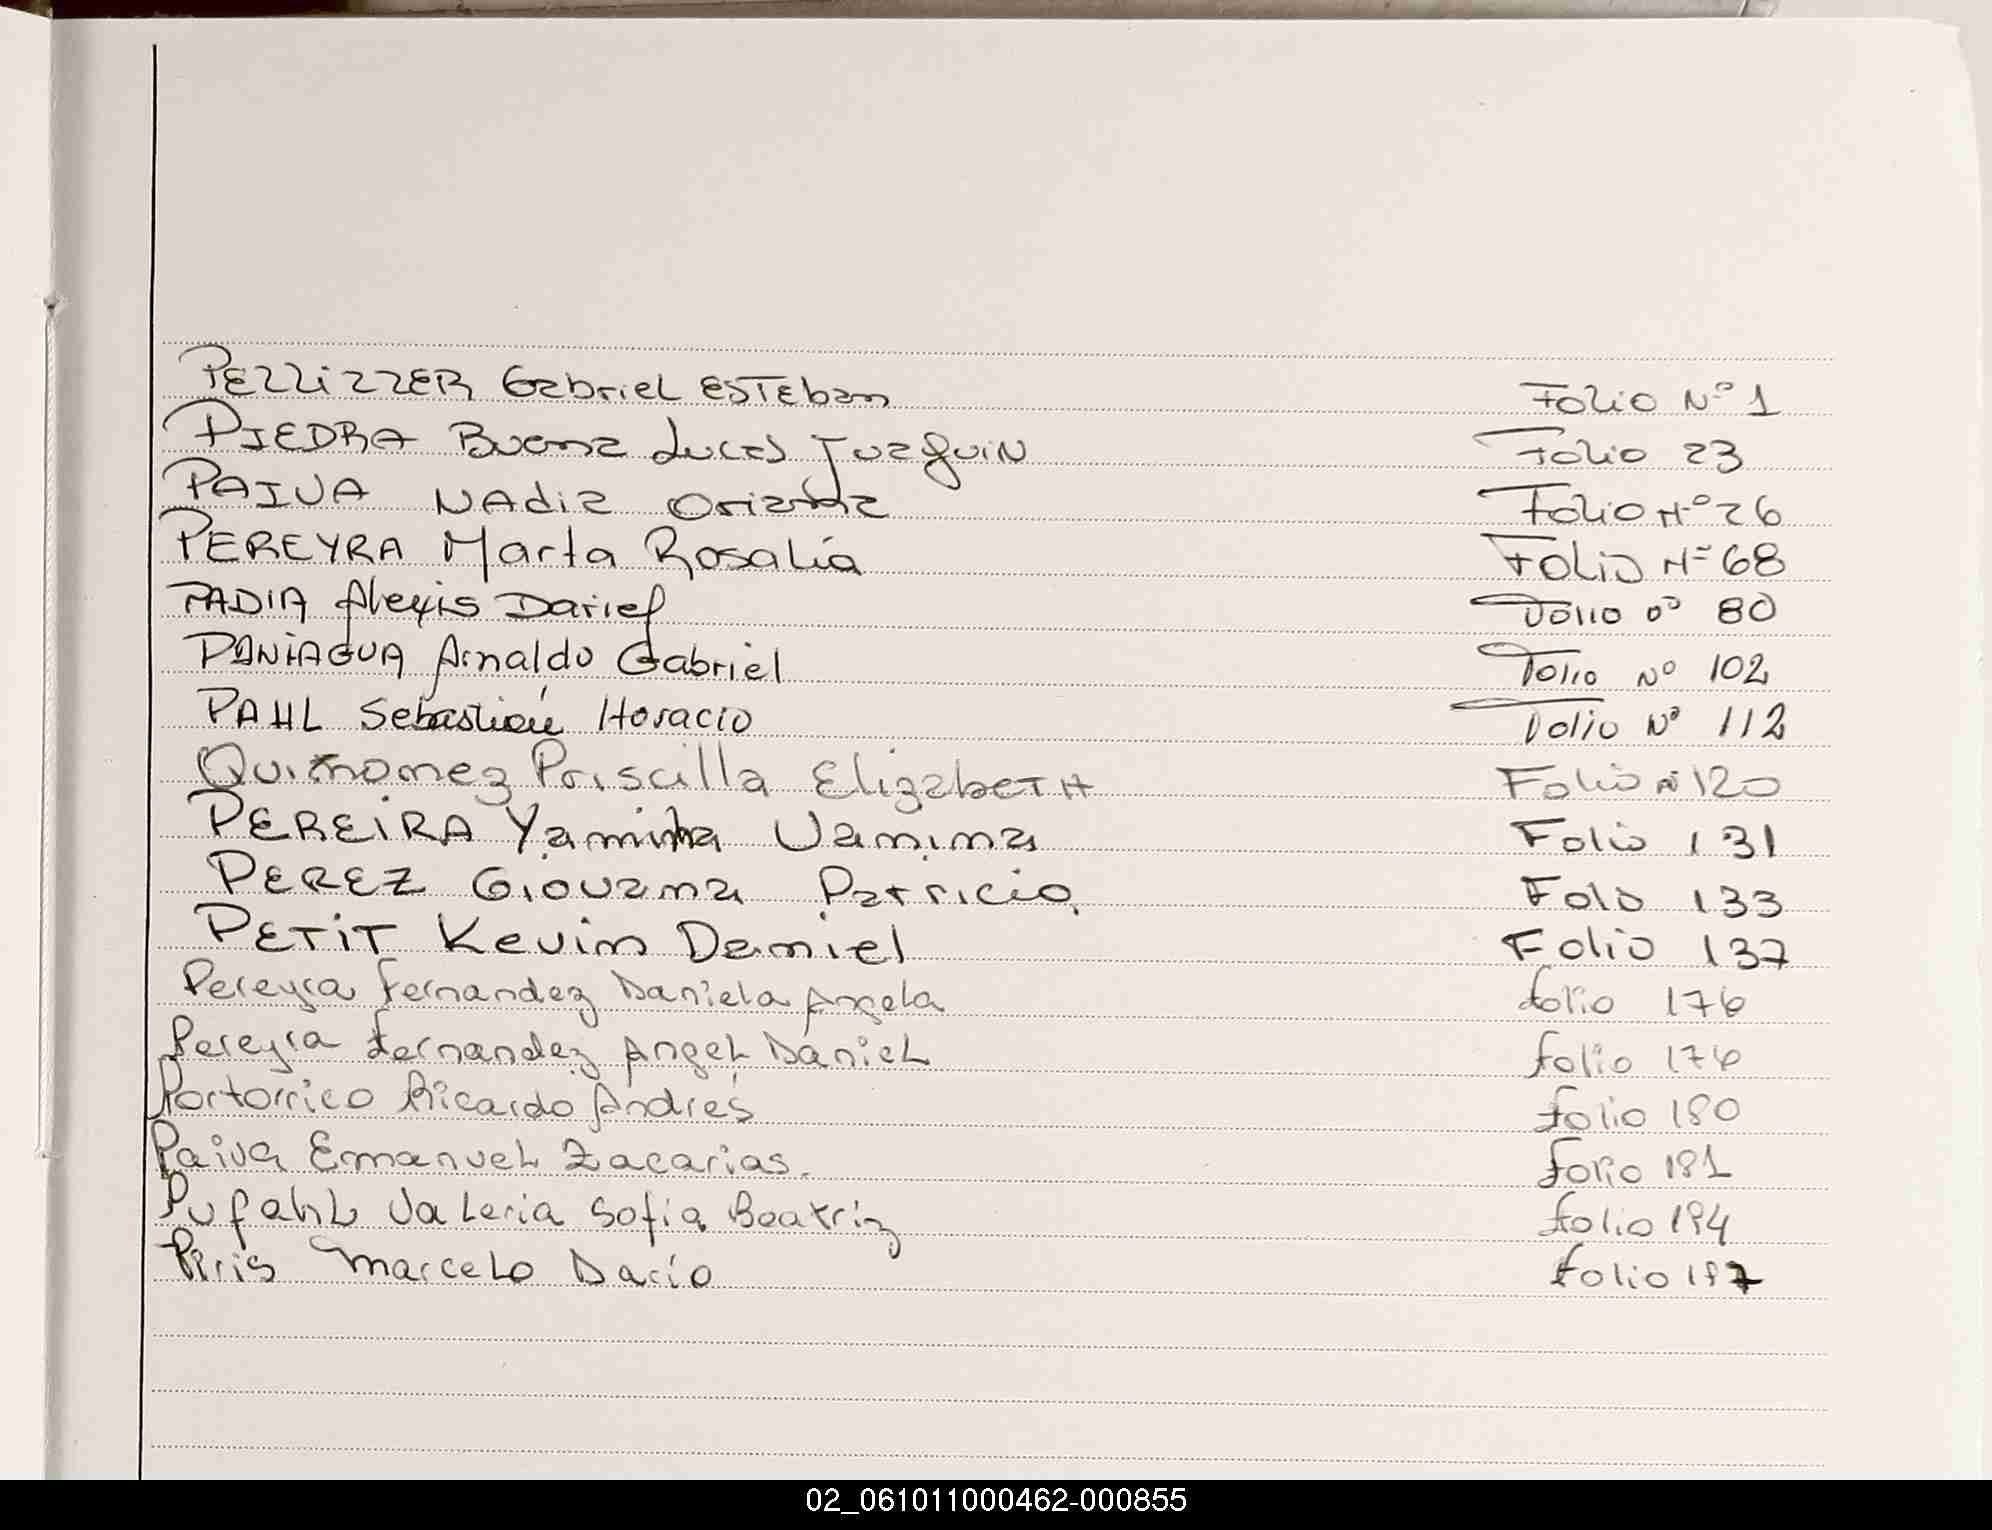 PELLIZZER Gabriel ESTEban Folio Nº 1
PIEDRA Buena Lucas Juaquin Folio 23
PAIVA NAdia Oriana Folio Nº 26
PEREYRA Marta Rosalía Folio Nº 68
PADIA Alexis Dariel Folio nº 80
PANiAGUA Arnaldo Gabriel Folio Nº 102
PAHL Sebastián Horacio Folio Nº 112
Quiñonez Priscilla ElizabeTH Folio Nº 120
PEREiRA Yamina Vanina Folio 131
PEREZ Giovana Patricia. Folio 133
PETiT Kevin Daniel Folio 137
Pereyra Fernandez Daniela Angela folio 176
Pereyra Fernandez Angel Daniel folio 176
Portorrico Ricardo Andrés folio 180
Paiva Emanuel Zacarias. folio 181
Pufahl Valeria Sofia Beatriz folio 194
Piris Marcelo Darío folio 197
02_061011000462-000855